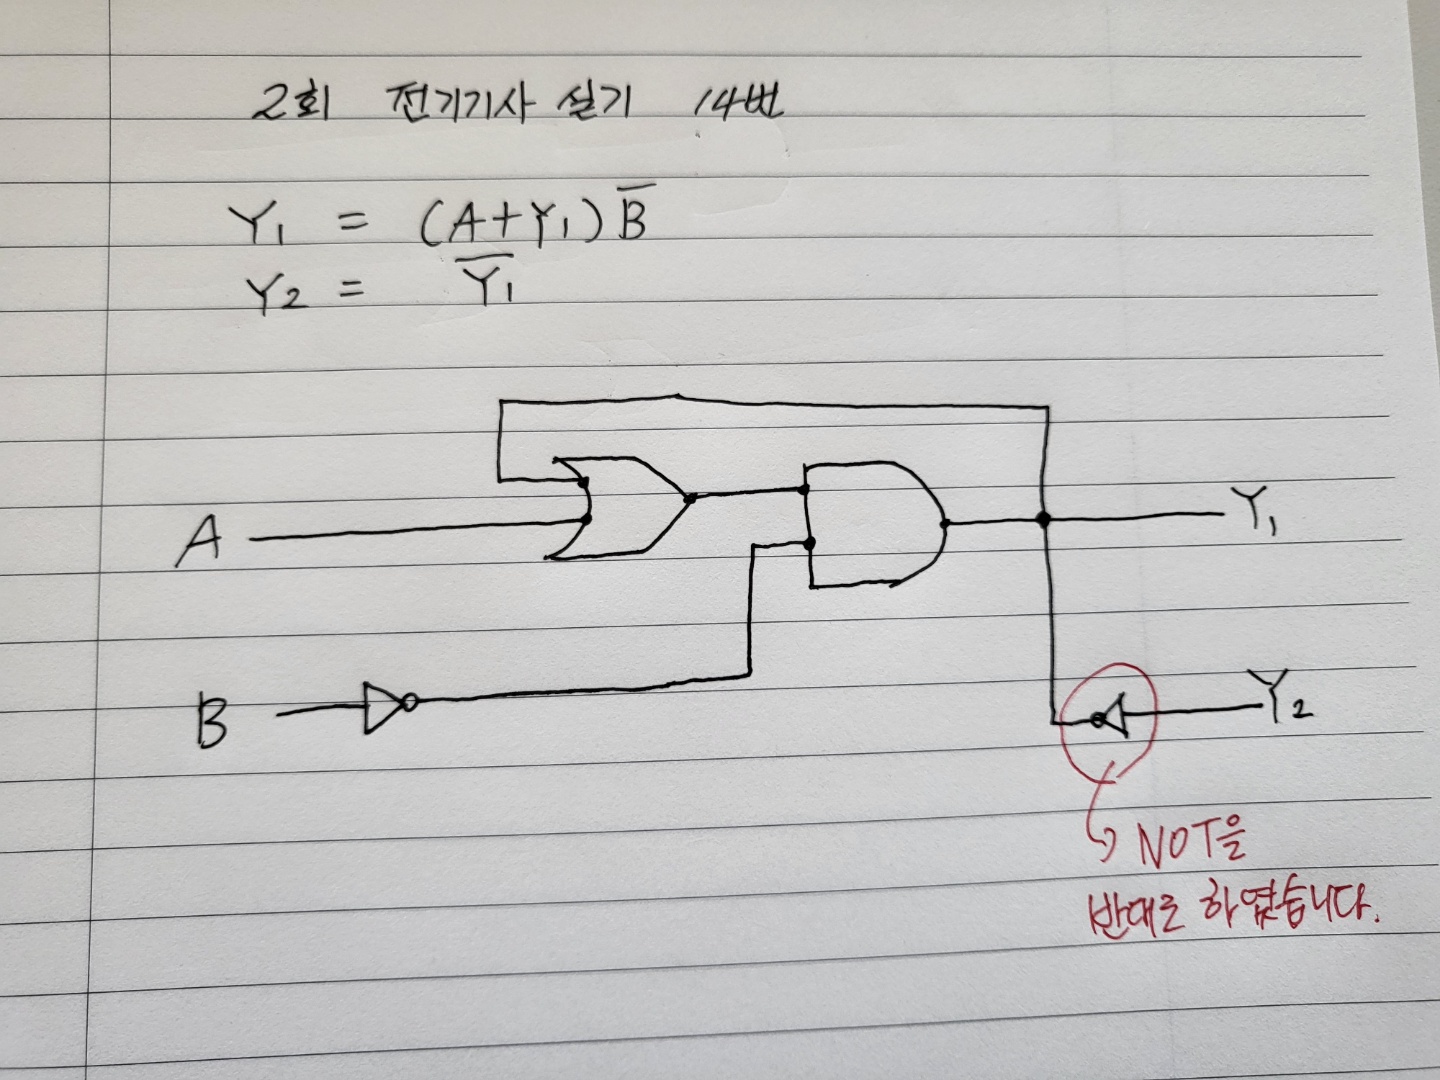 2회 전기기사 실기 14번
Y₁ = (A+Y₁)B̅
Y₂ = Y̅₁
A
Y₁
B
Y₂
NOT을
반대로 하였습니다.